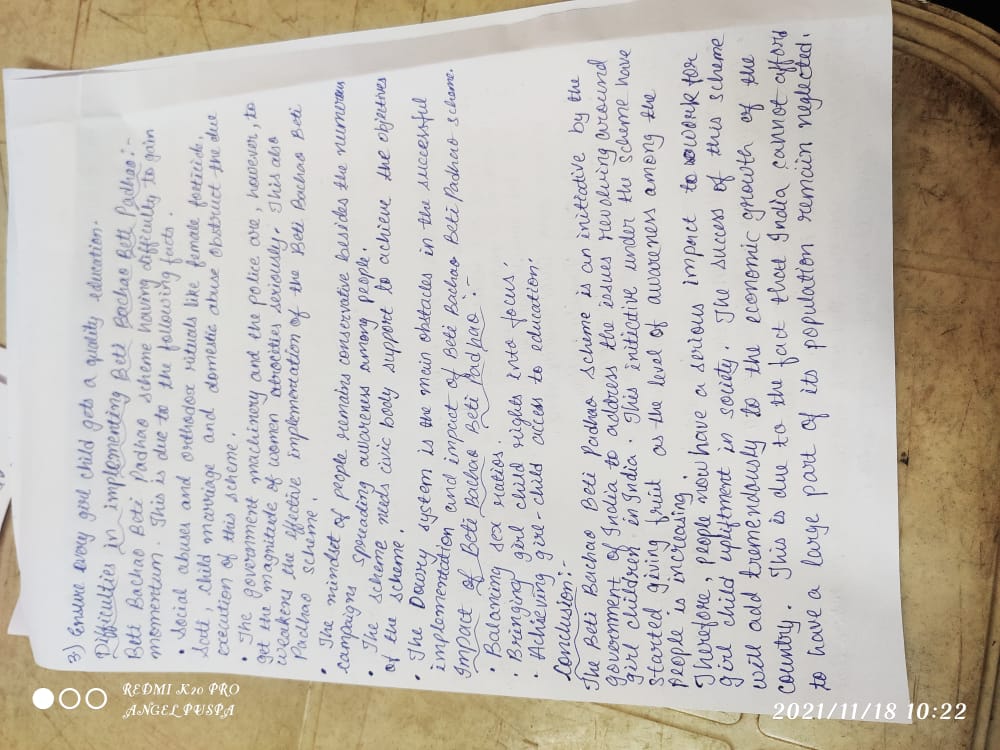 3) Ensure every girl child gets a quality education.
Difficulties in implementing Beti Bachao Beti Padhao:-
Beti Bachao Beti Padhao scheme having difficulty to gain
momentum. This is due to the following facts.
• Social abuses and orthodox rituals like female foeticide,
Sati, child marriage and domestic abuse obstruct the due
execution of this scheme.
• The government machinery and the police are, however, to
get the magnitute of women atrocities seriously. This also
weakens the effective implementation of the Beti Bachao Beti
Padhao scheme.
• The mindset of people remains conservative besides the numerous
campaigns spreading awareness among people.
• The scheme needs civic body support to achieve the objectives
of the scheme.
• The Dowry system is the main obstacles in the successful
implementation and impact of Beti Bachao Beti Padhao scheme.
Impact of Beti Bachao Beti Padhao:-
• Balancing sex ratios.
• Bringing girl child rights into focus.
• Achieving girl-child access to education.
Conclusion:-
The Beti Bachao Beti Padhao scheme is an initiative by the
government of India to address the issues revolving around
girl children in India. This initiative under the scheme have
started giving fruit as the level of awareness among the
people is increasing.
Therefore, people now have a serious impact to work for
girl child upliftment in society. The success of this scheme
will add tremendously to the economic growth of the
country. This is due to the fact that India cannot afford
to have a large part of its population remain neglected.
REDMI K20 PRO
ANGEL PUSPA
2021/11/18 10:22